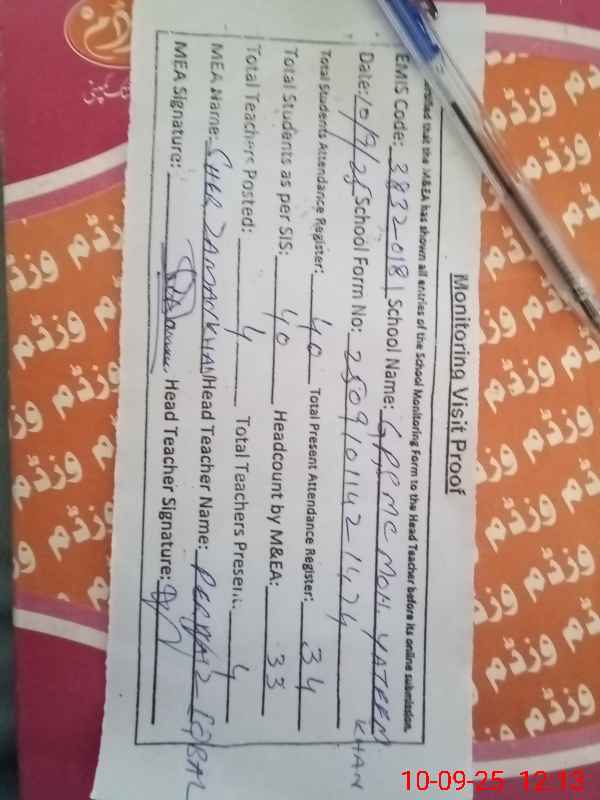 Monitoring Visit Proof
that the M&EA has shown all entries of the School Monitoring Form to the Head Teacher before its online submission.
EMIS Code: 3832-0181 School Name: GPS MC MOH. YATEEM KHAN
Date: 10/9/25 School Form No: 2509101142 1474
Total Students Attendance Register: 40 Total Present Attendance Register: 34
Total Students as per SIS: 40 Headcount by M&EA: 33
Total Teachers Posted: 4 Total Teachers Present: 4
MEA Name: SHER ZAMAN KHAN Head Teacher Name: PERVAIZ IQBAL
MEA Signature: Head Teacher Signature:
وزڈم وزڈم
10-09-25 12:13